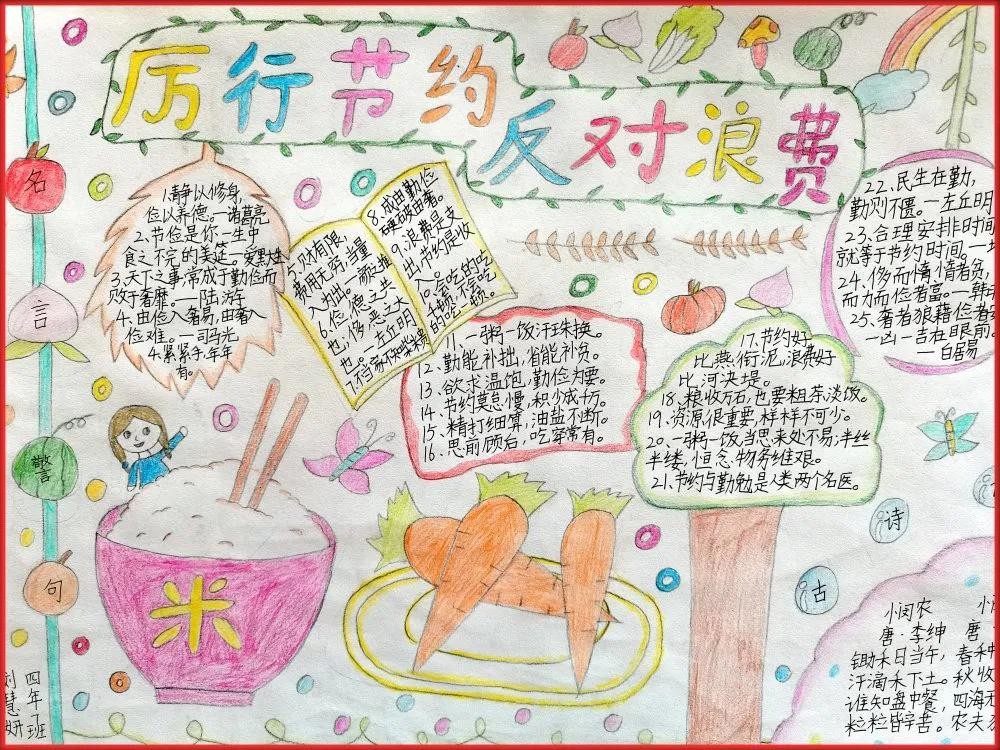 厉行节约
反对浪费
名
言
警
句
1.静以修身,
俭以养德。—诸葛亮
2、节俭是你一生中
食之不完的美筵。—爱默生
3、天下之事,常成于勤俭而
败于奢靡。—陆游
4、由俭入奢易,由奢入
俭难。—司马光
4.紧紧手,年年
有。
财有限,
费用无穷,当量
入为出。
6、俭,德之共
也,侈,恶之大
也。—左丘明
7、
8、成由勤俭
破由奢。
9、浪费是支
出,节约是收
入。
10、会吃的吃
千顿,不会吃
的吃一顿。
11、一粥一饭汗珠换。
12、勤能补拙,省能补贫。
13、欲求温饱,勤俭为要。
14、节约莫怠慢,积少成千万。
15、精打细算,油盐不断。
16、思前顾后,吃穿常有。
17、节约好
比燕衔泥,浪费好
比河决堤。
18、粮收万石,也要粗茶淡饭。
19、资源很重要,样样不可少。
20、一粥一饭,当思来处不易;半丝
半缕,恒念物力维艰。
21、节约与勤勉是人类两个名医。
22、民生在勤,
勤则不匮。—左丘明
23、合理安排时间
就等于节约时间。—
24、侈而惰者贫,
而力而俭者富。—韩
25、奢者狼藉俭者
一凶一吉在眼前。
—白居易
米
诗
古
悯农
唐·李绅
锄禾日当午,
汗滴禾下土。
谁知盘中餐,
粒粒皆辛苦。
唐
春种
秋收
四海无
农夫
四年
班
刘慧妍